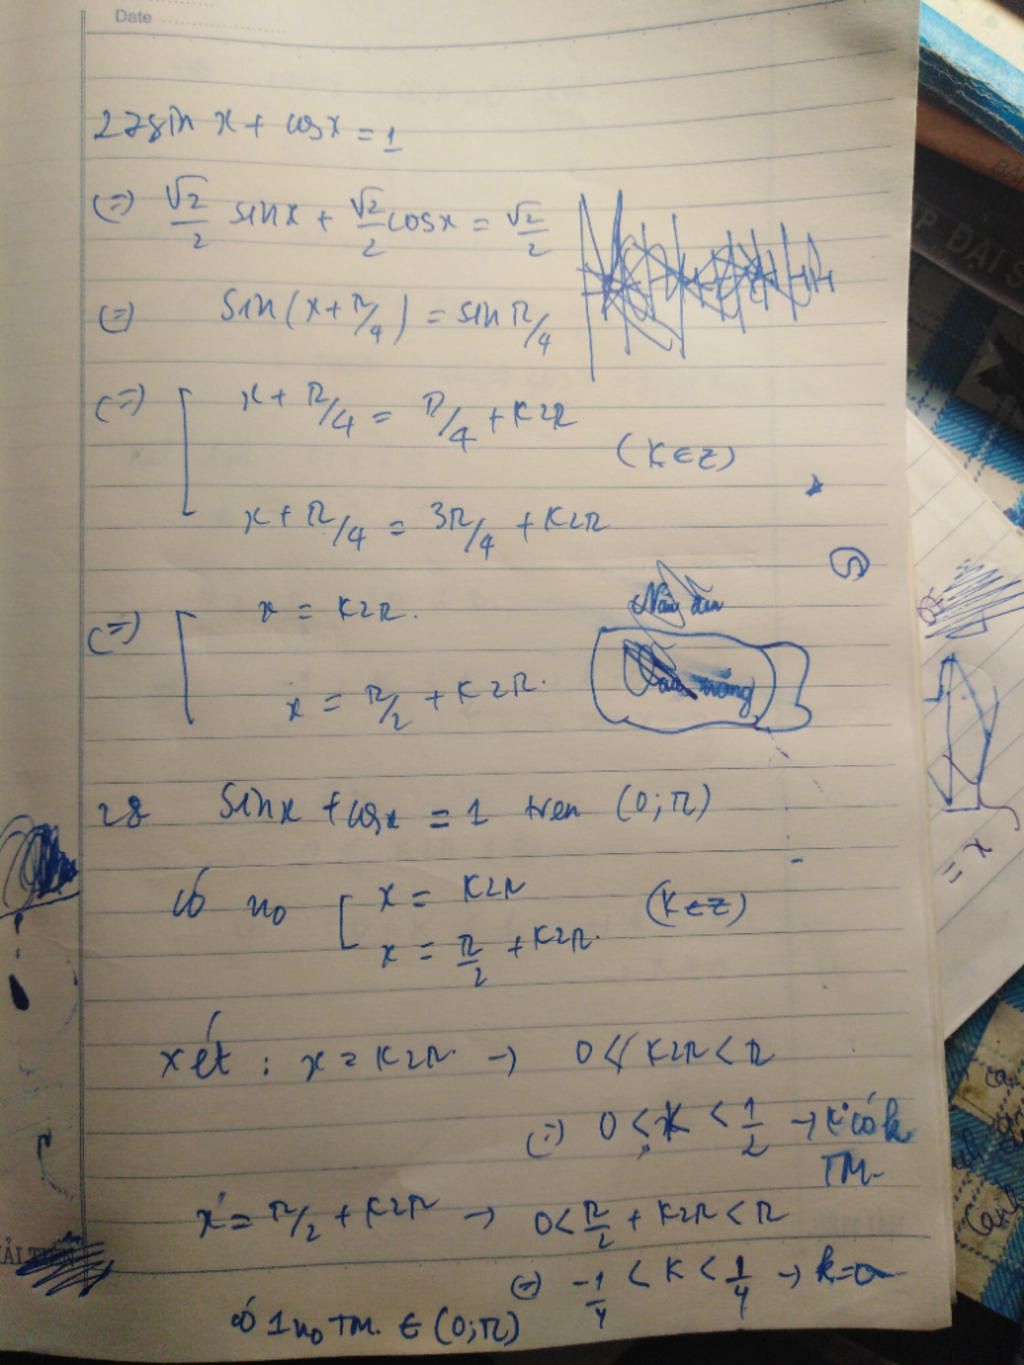 Date
27 sin x + cosx = 1
(=) √2/2 sinx + √2/2 cosx = √2/2
(=) sin(x+π/4) = sin π/4
(=) [ x + π/4 = π/4 + K2π
(K∈Z)
x + π/4 = 3π/4 + K2π
(=) [ x = K2π.
x = π/2 + K2π.
28 sinx + cosx = 1 tren (0;π)
có no [ x = K2π
x = π/2 + K2π. (K∈Z)
xét : x = K2π → 0 < K2π < π
(=) 0 < K < 1/2 → K có k
TM
x = π/2 + K2π → 0 < π/2 + K2π < π
(=) -1/4 < K < 1/4 → k=0
có 1 no TM. ∈ (0;π)
P ĐẠI S
x =